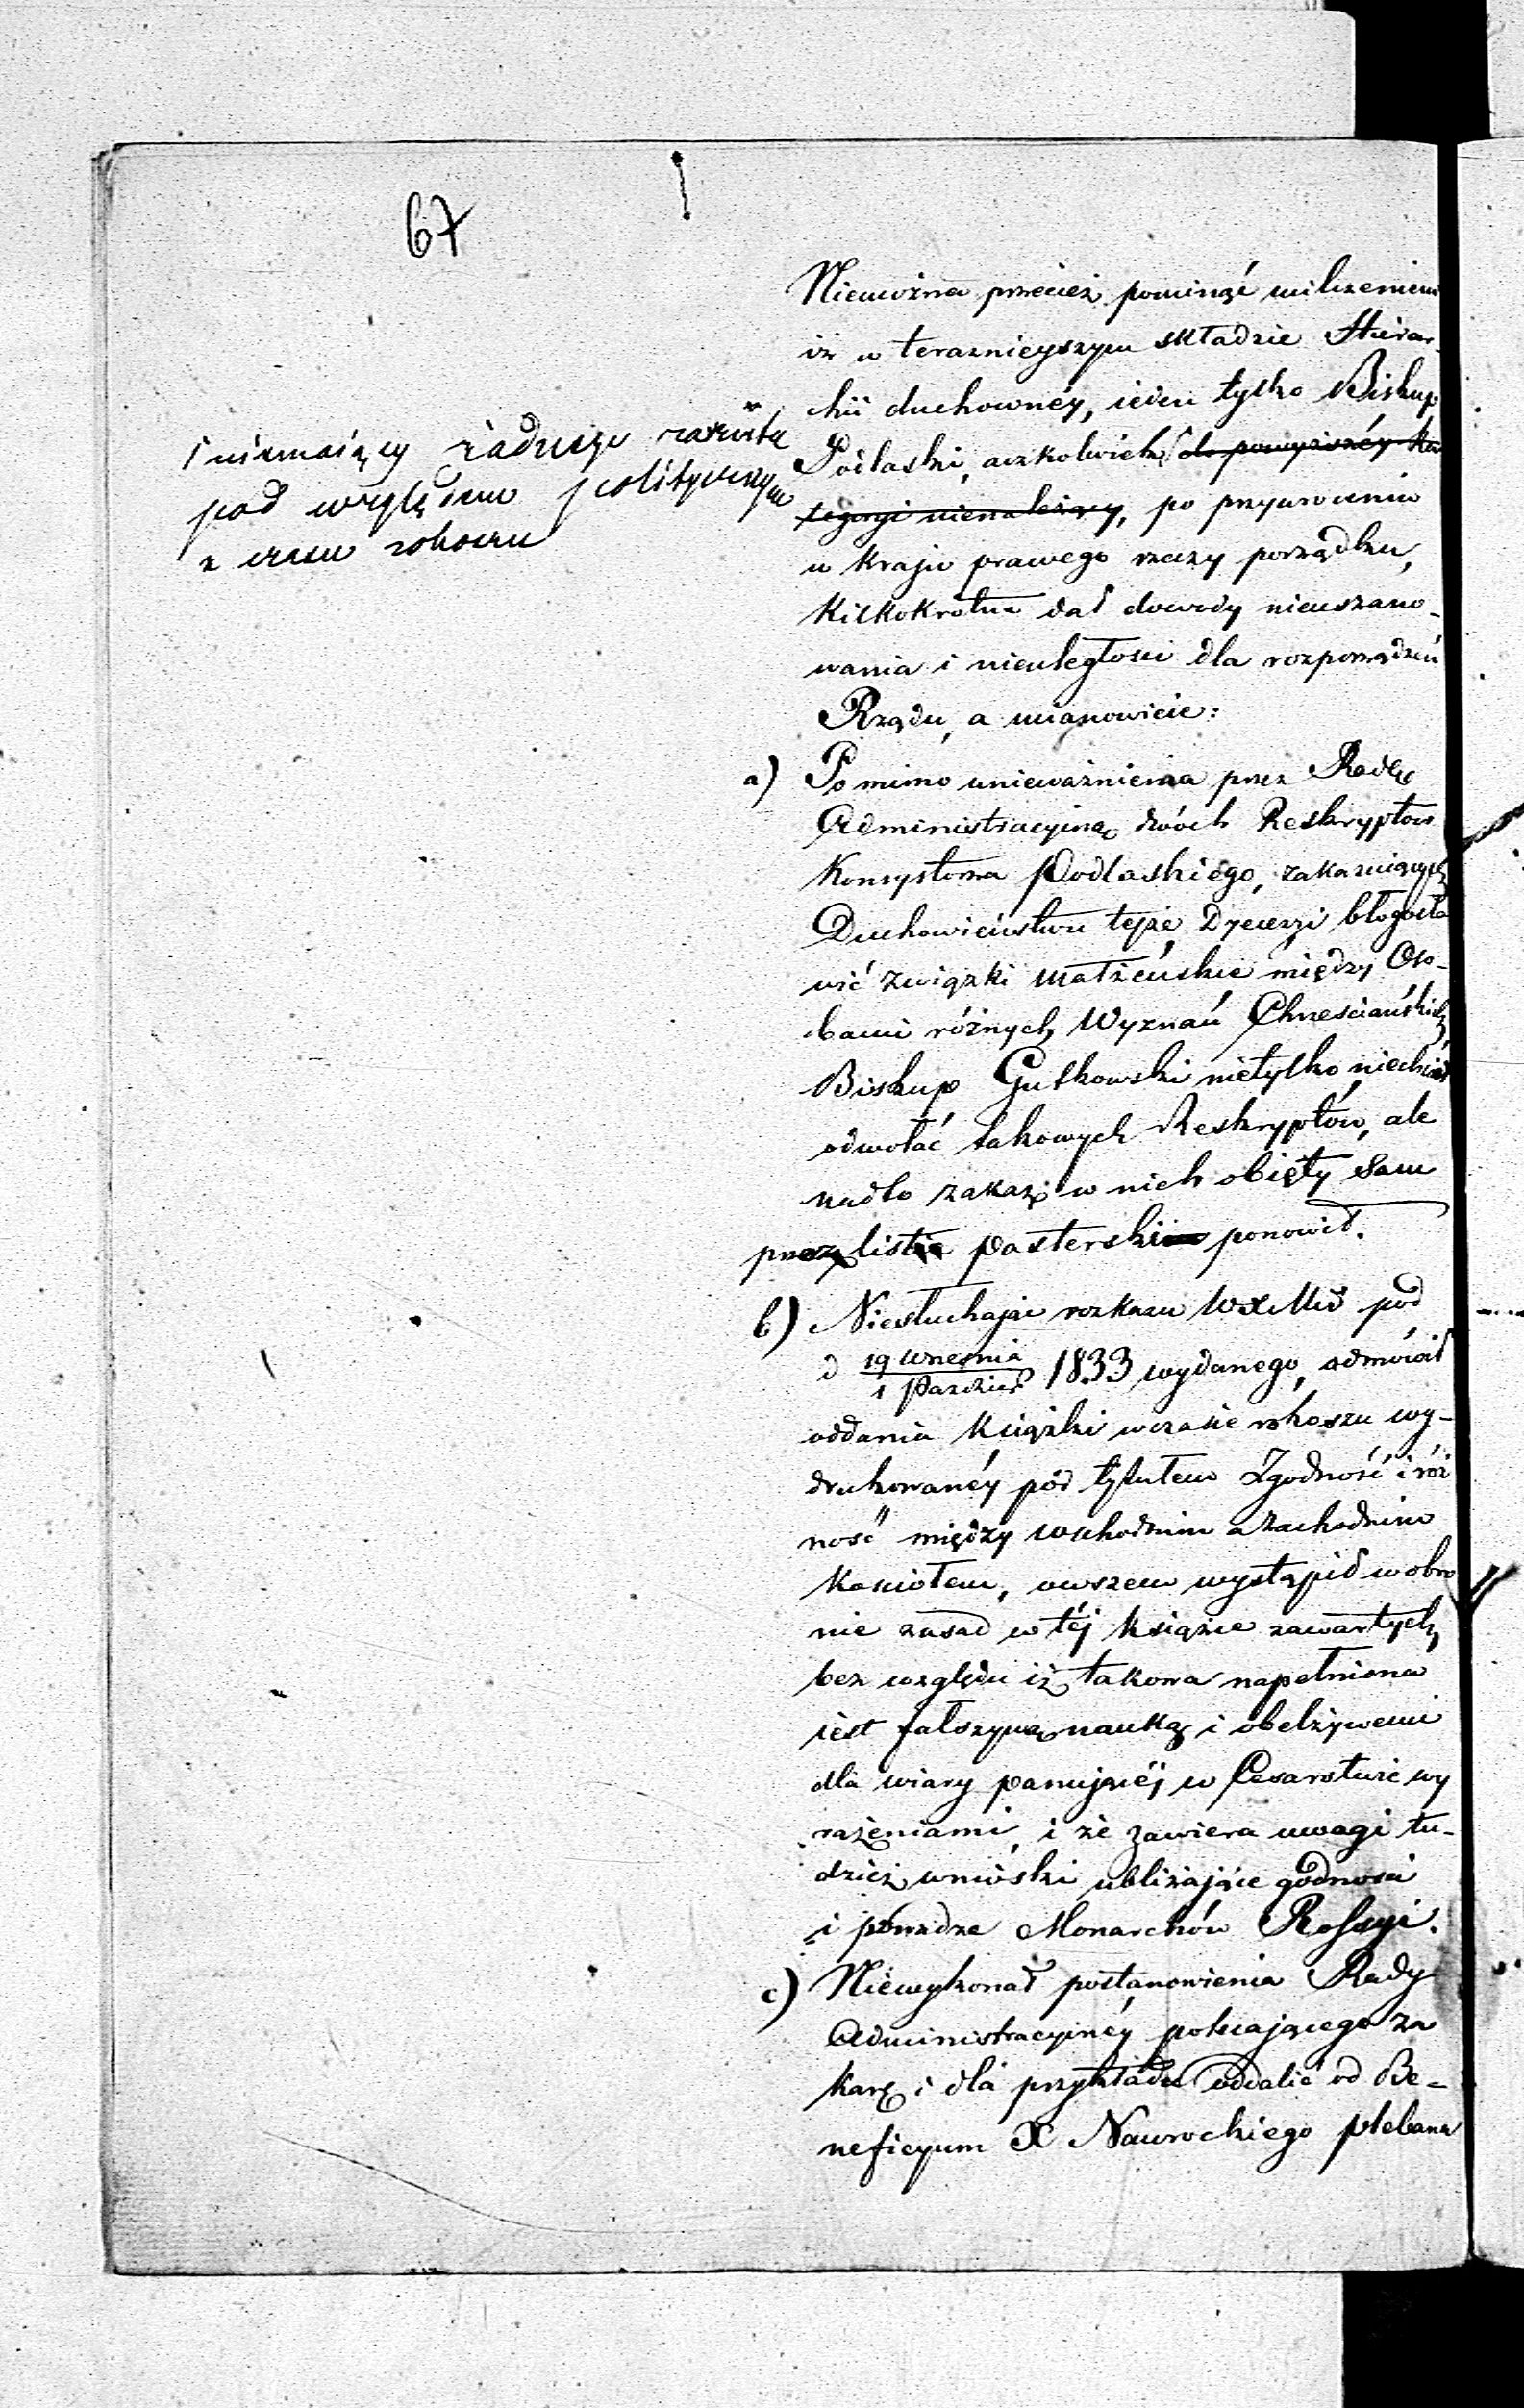 67
Niemożna przecież pominąć milczeniem
iż w teraznieyszym składzie Hierar-
chii duchownéy, ieden tylko Biskup
i niemaiący żadnego zarzutu
pod względem politycznym
z czasu rokoszu
Podlaski, aczkolwiek do powyższéy Ka
tegoryi nienależący, po przywróceniu
w kraju prawego rzeczy porządku,
kilkokrotne dał dowody nieuszano-
wania i nieuległości dla rozporządzeń
Rządu, a mianowicie:
a) Po mimo unieważnienia przez Radę
Administracyiną dwóch Reskryptów
Konsystorza Podlaskiego, zakazuiących
Duchowieństwu tejże Dyecezji błogosła
wić związki małżeńskie między Oso-
bami różnych Wyznań Chrześciańskich
Biskup Gutkowski nietylko niechciał
odwołać takowych Reskryptów, ale
nadto zakaz w nich obięty sam
przez list pasterski ponowił.
b) Niesłuchając rozkazu WXMci pod
d 19 Września / 1 Paździer 1833 wydanego, odmówił
oddania Książki wczasie rokoszu wy-
drukowanéy pod tytułem Zgodność i róż
ność" między wschodnim a zachodnim
kościołem, owszem wystąpił w obro
nie zasad w téj książce zawartych,
bez względu iż takowa napełniona
iest fałszywą nauką i obelżywemi
dla wiary panującéj w Cesarstwie wy
rażeniami, i że zawiera uwagi tu-
dzież wnioski ubliżające godności
i powadze Monarchów Rossyi.
c) Niewykonał postanowienia Rady
Administracyinéy polecającego za
karę i dla przykładu oddalić od Be-
neficyum X Nawrockiego plebana